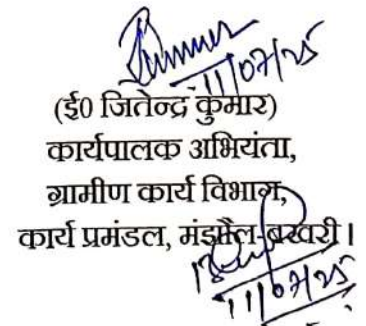 11/07/25
(ई0 जितेन्द्र कुमार)
कार्यपालक अभियंता,
ग्रामीण कार्य विभाग,
कार्य प्रमंडल, मंझौल-बखरी।
11/07/25